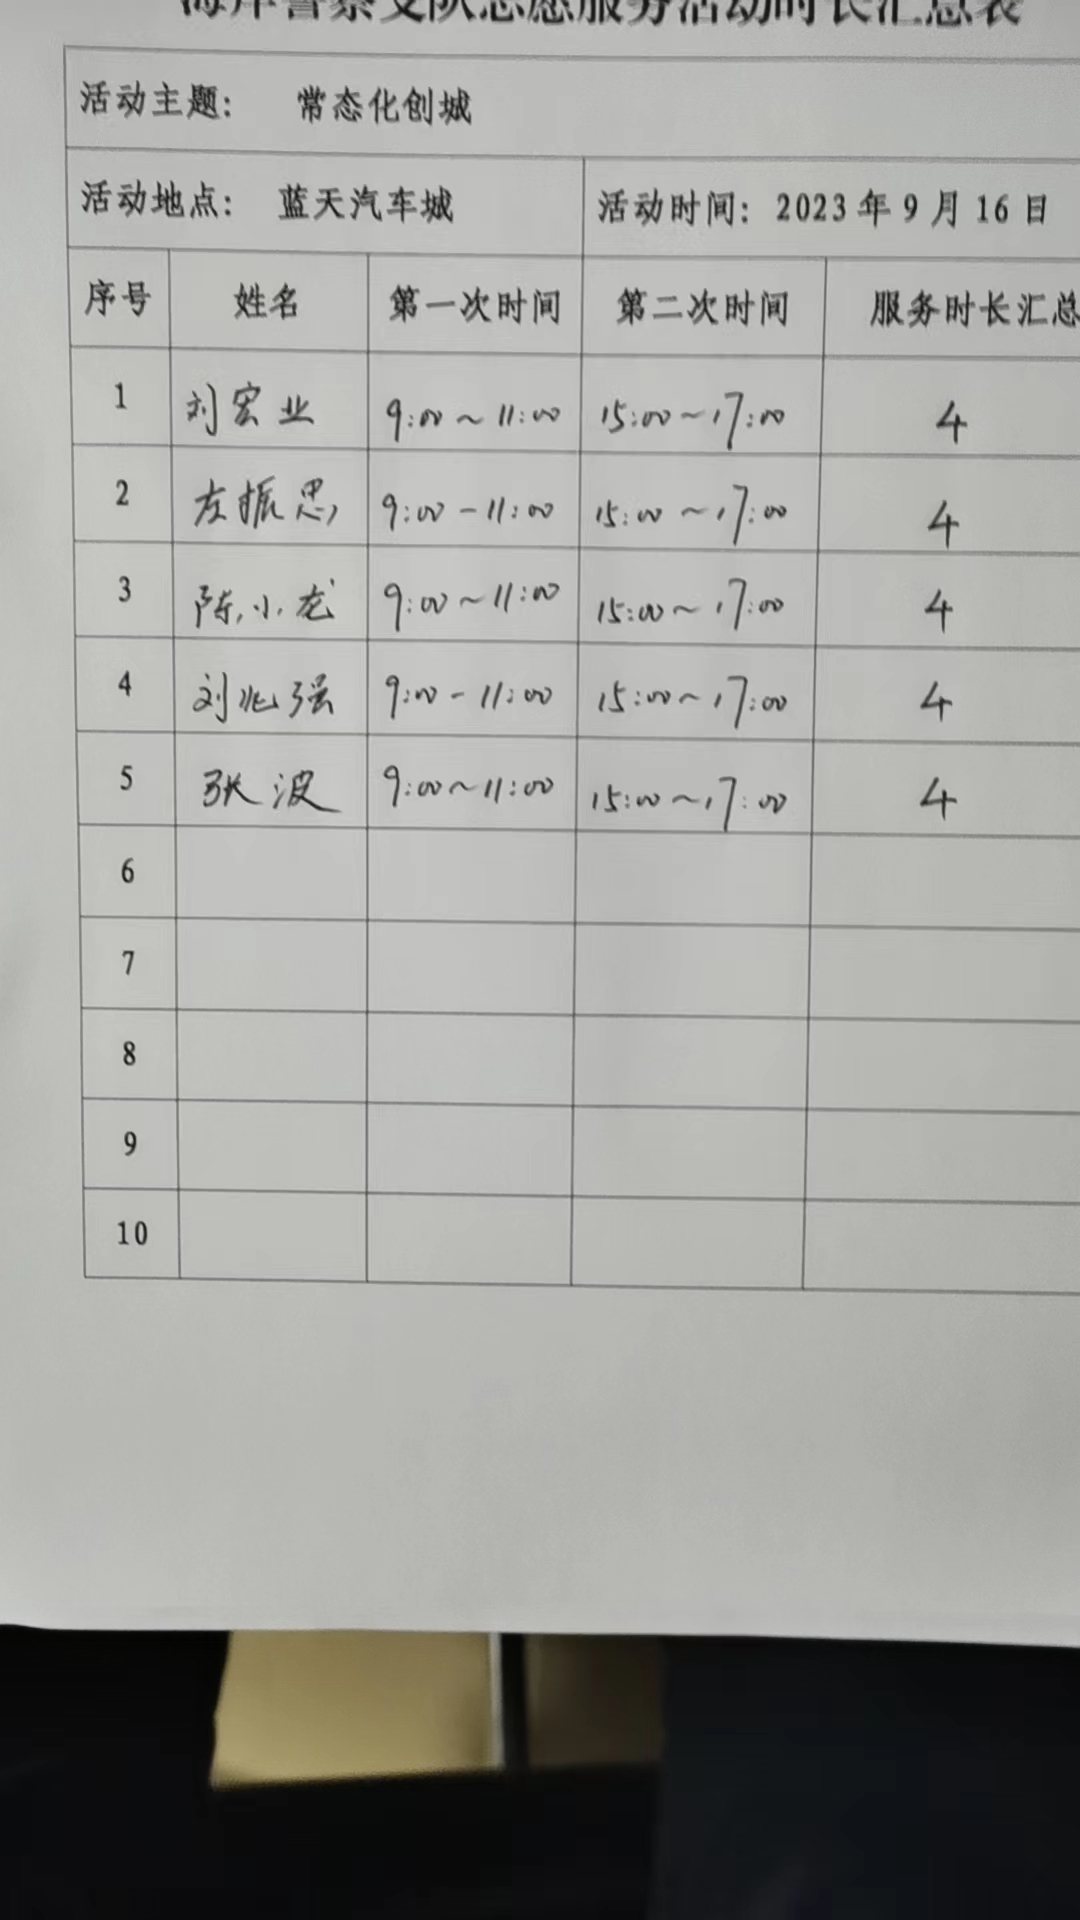 海岸警察支队志愿服务活动时长汇总表
活动主题: 常态化创城
活动地点: 蓝天汽车城 活动时间: 2023年9月16日
序号 姓名 第一次时间 第二次时间 服务时长汇总
1 刘宏业 9:00~11:00 15:00~17:00 4
2 左振思 9:00-11:00 15:00~17:00 4
3 陈小龙 9:00~11:00 15:00~17:00 4
4 刘兆强 9:00-11:00 15:00~17:00 4
5 张波 9:00~11:00 15:00~17:00 4
6
7
8
9
10